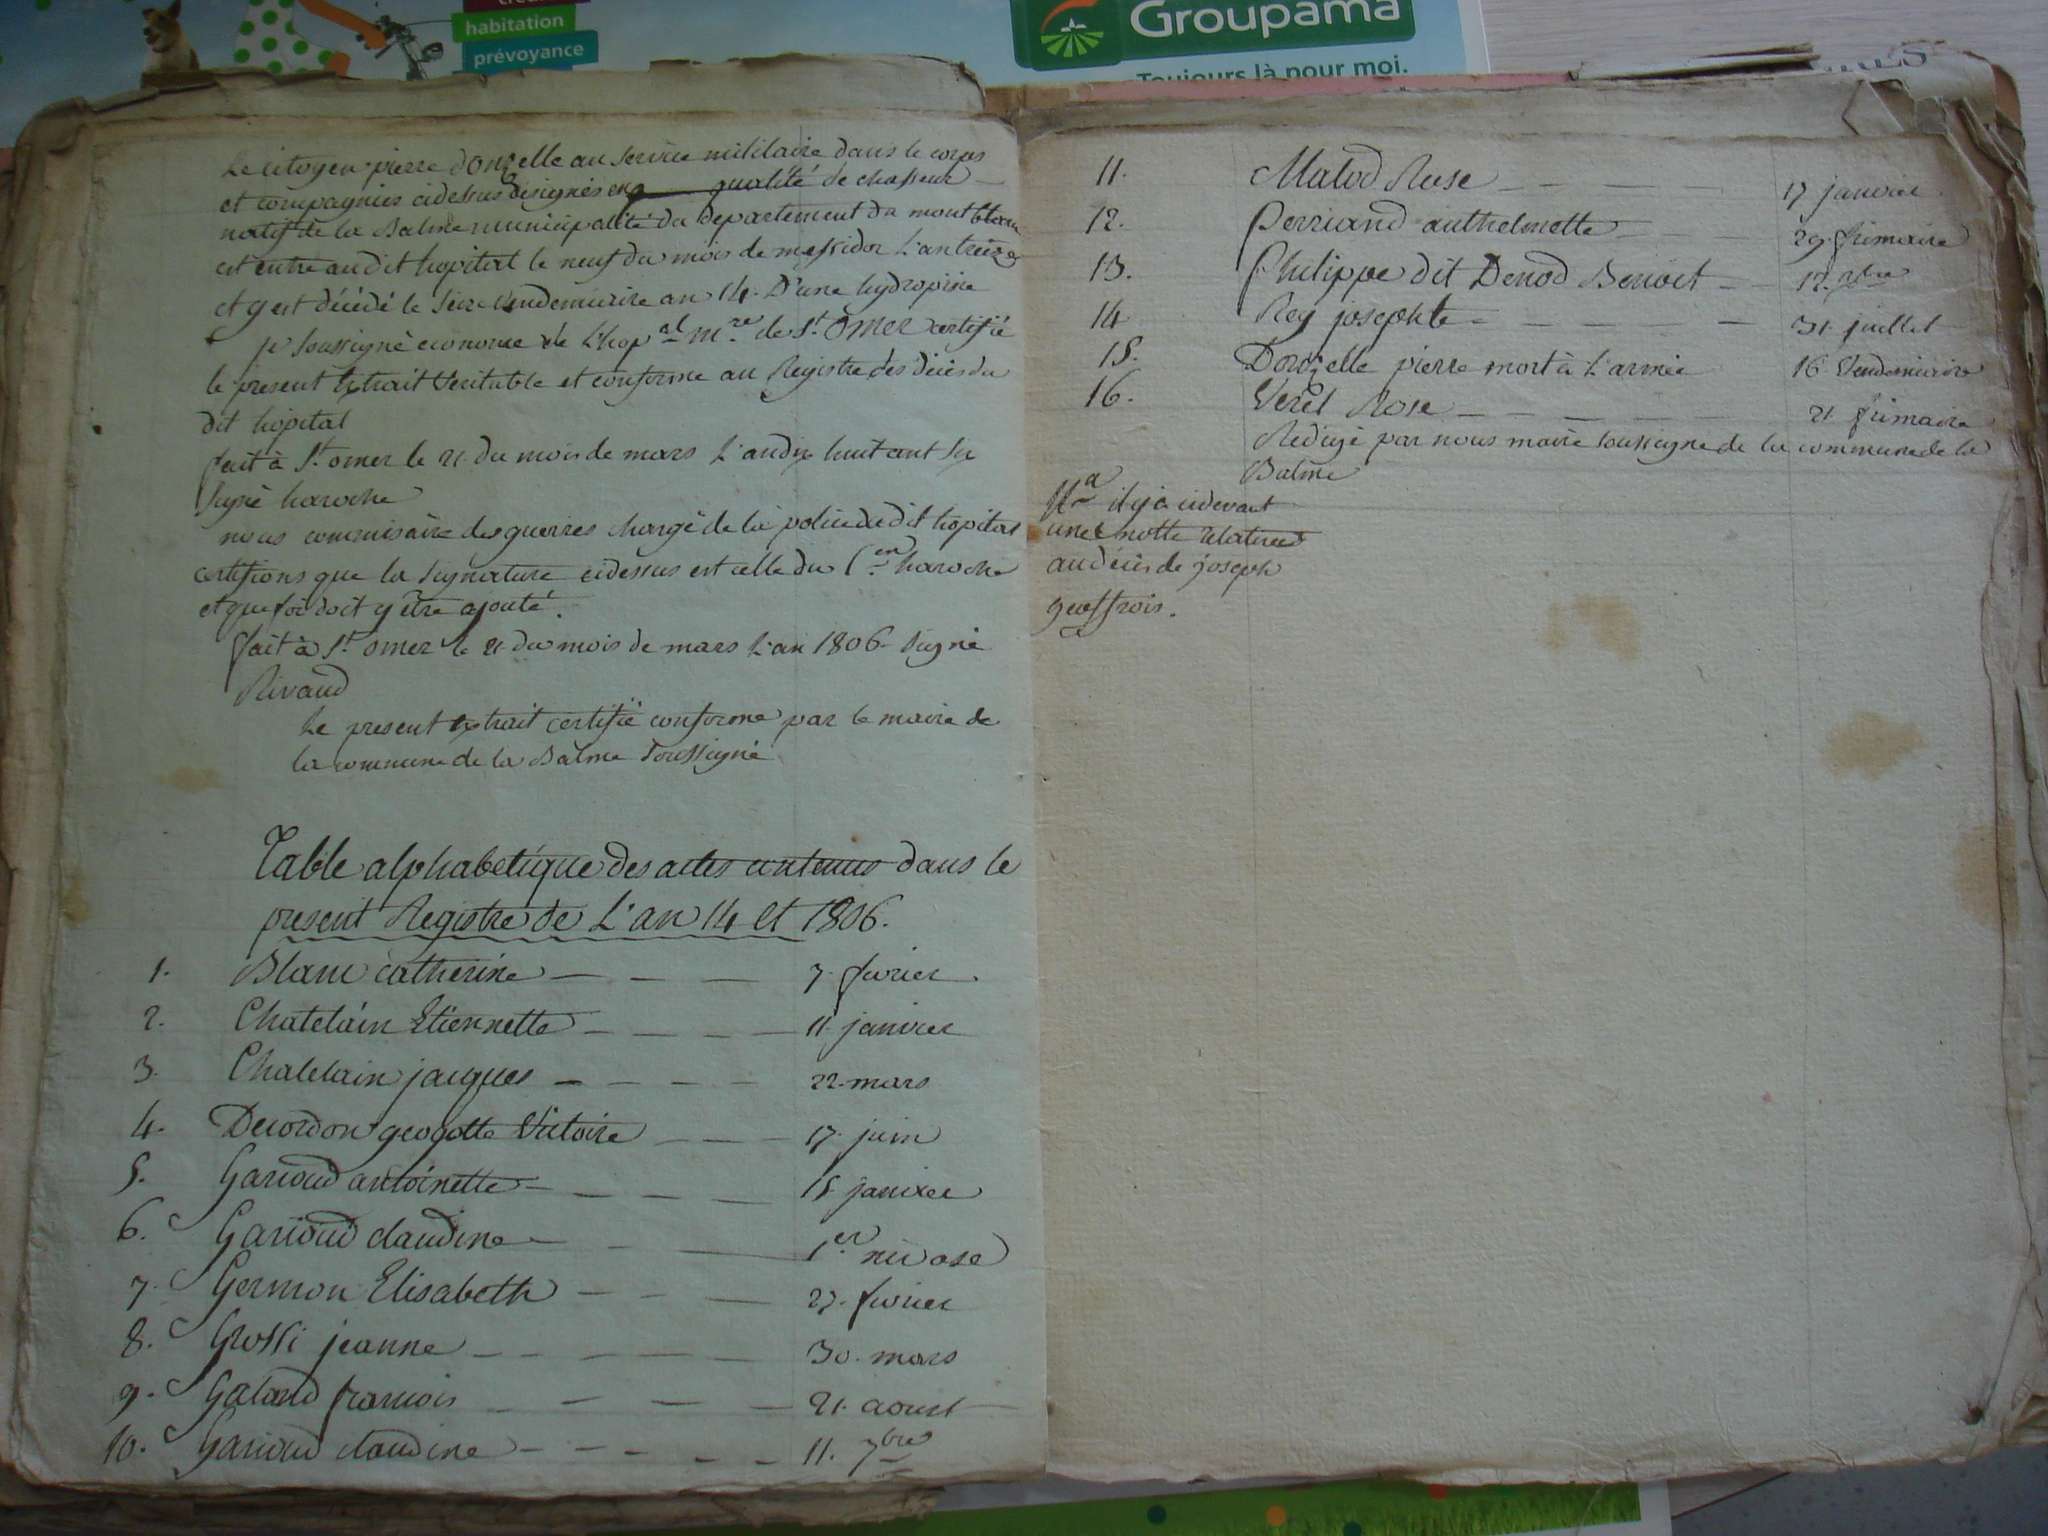 habitation
prévoyance
Groupama
Toujours là pour moi.
Le citoyen pierre donzelle au service militaire dans le corps
et compagnies cidessus designés en qualité de chasseur
natif de la Balme municipalité du departement du montblanc
est entré audit hopital le neuf du mois de messidor L'an treize
et y est décédé le seize vendemiaire an 14. D'une hydropisie
je soussigné econome de L'hop.al m.re de S.t Omer certifie
le present Extrait Veritable et conforme au Registre des décès du
dit hopital
fait à S.t omer le 21 du mois de mars L'an dix huit cent six
signé haroche
nous commisaire des guerres chargé de la police dudit hopital
certifions que la signature cidessus est celle du C.en haroche
et que foi doit y être ajouté.
fait à S.t omer le 21 du mois de mars L'an 1806. signé
Rivaud
Le present extrait certifié conforme par le maire de
la commune de la Balme soussigné
Table alphabetique des actes contenus dans le
present Registre de L'an 14 et 1806.
1. Blanc catherine — — — 7. fevrier
2. Chatelain Etiennette — — — — 11. janvier
3. Chatelain jacques — — — — 22. mars
4. Decordon geogotte Victoire — — — 17. juin
5. Gavioud antoinette — — — — 15 janvier
6. Gavioud claudine — — — 1.er nivose
7. Germon Elisabeth — — — 27. fevrier
8. Grossi jeanne — — — — — 30. mars
9. Galand francois — — — — 21. aoust
10. Gavioud claudine — — — — — 11. 7bre
11. Malod Rose — — — — 17 janvier
12. Perriand anthelmette — — 29. frimaire
13. Philippe dit Denod Benoit — — 12. xbre
14 Rey josephte — — — — — 31. juillet
15. Donzelle pierre mort à L'armée 16 Vendemiaire
16. Veret Rose — — — — — — 21 frimaire
Redigé par nous maire soussigné de la commune de la
Balme
N.a il y a cidevant
une notte relative
au décès de joseph
geoffrois.